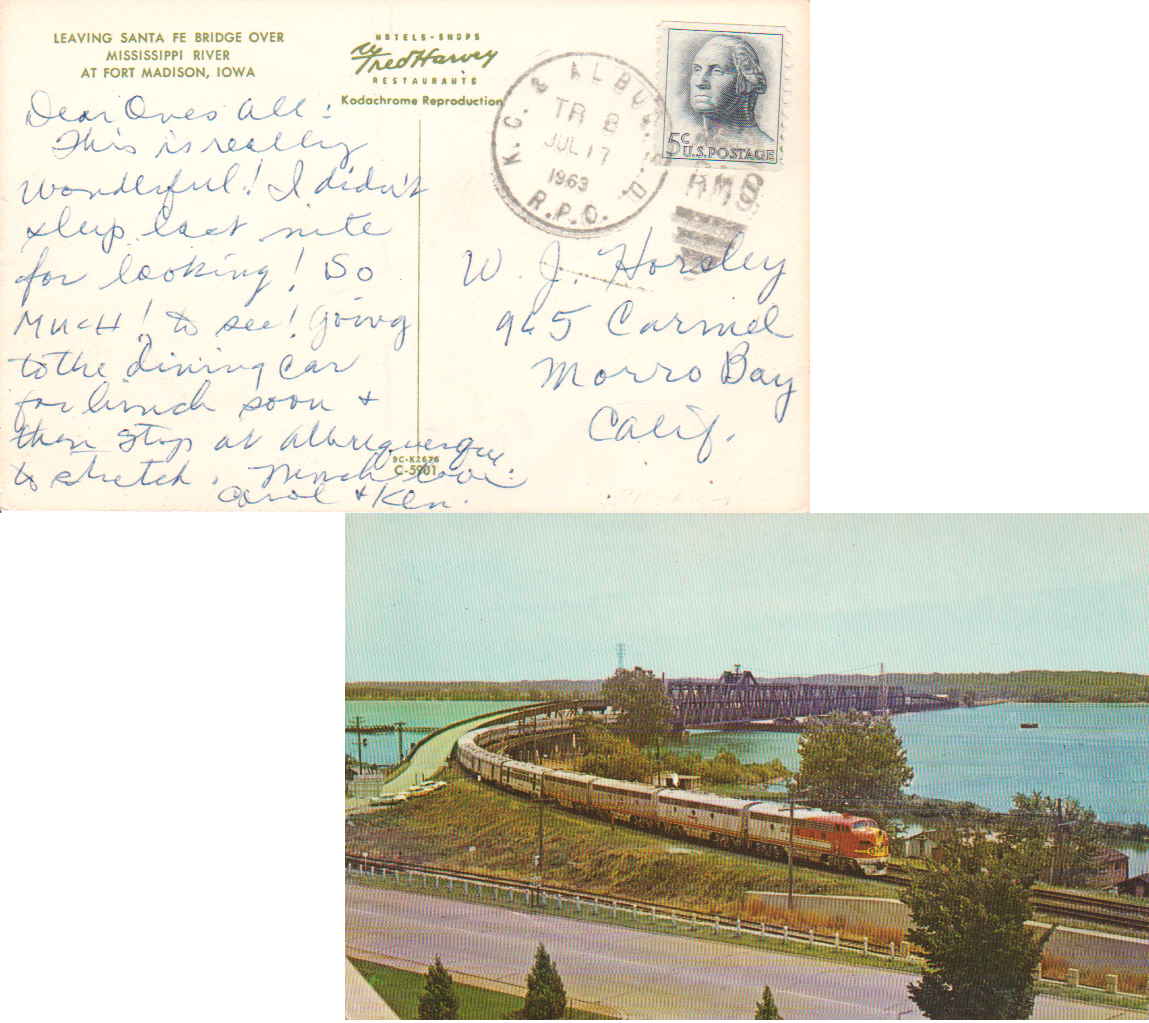 LEAVING SANTA FE BRIDGE OVER
MISSISSIPPI RIVER
AT FORT MADISON, IOWA
HOTELS-SHOPS
Fred Harvey
RESTAURANTS
Kodachrome Reproduction
K.C. & ALBUQ. W.D.
TR 8
JUL 17
1963
R.P.O.
5¢
U.S. POSTAGE
RMS
Dear Ones All:
This is really
Wonderful! I didn't
sleep last nite
for looking! So
MUCH! to see! Going
to the dining car
for lunch soon +
then stop at Alburquerque
to stretch. Much love:
Carol & Ken.
W. J. Horsley
945 Carmel
Morro Bay
Calif.
SC-K2676
C-5901